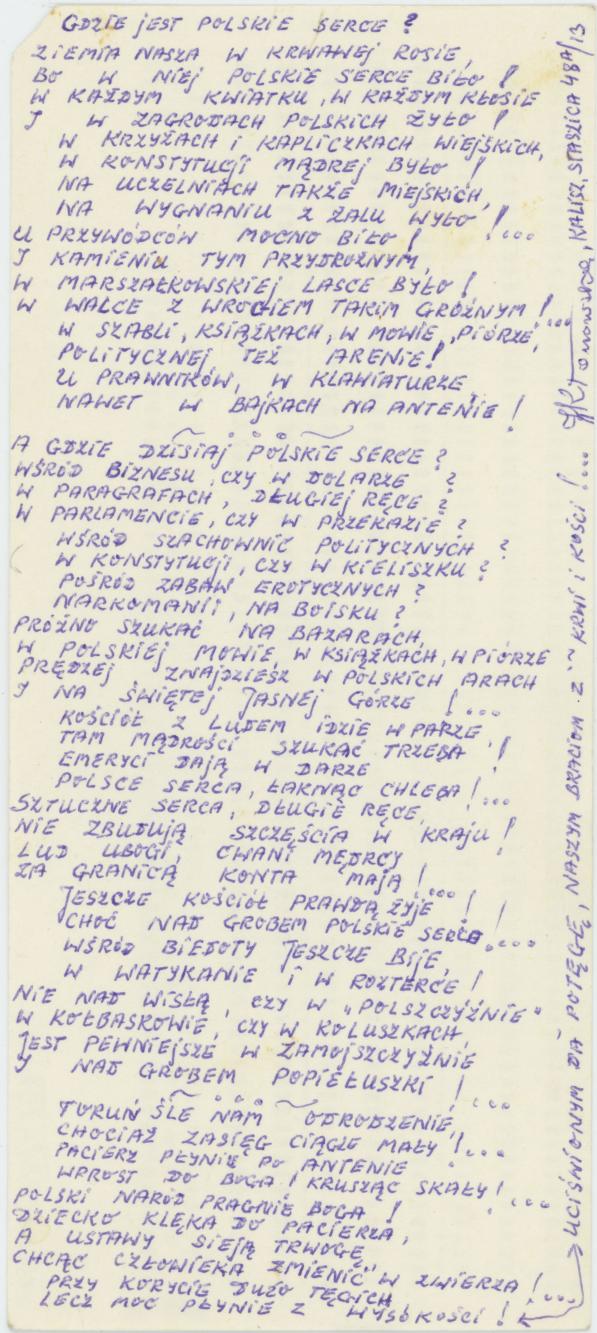 GDZIE JEST POLSKIE SERCE?
ZIEMIA NASZA W KRWAWEJ ROSIE,
BO W NIEJ POLSKIE SERCE BIŁO!
W KAŻDYM KWIATKU, W KAŻDYM KŁOSIE
I W ZAGRODACH POLSKICH ŻYŁO!
W KRZYŻACH I KAPLICZKACH WIEJSKICH,
W KONSTYTUCJI MĄDREJ BYŁO!
NA UCZELNIACH TAKŻE MIEJSKICH,
NA WYGNANIU Z ŻALU WYŁO!...
U PRZYWÓDCÓW MOCNO BIŁO!
I KAMIENIU TYM PRZYDROŻNYM,
W MARSZAŁKOWSKIEJ LASCE BYŁO!
W WALCE Z WROGIEM TAKIM GROŹNYM!...
W SZABLI, KSIĄŻKACH, W MOWIE, PIÓRZE,
POLITYCZNEJ TEŻ ARENIE!
U PRAWNIKÓW, W KLAWIATURZE
NAWET W BAJKACH NA ANTENIE!
A GDZIE DZISIAJ POLSKIE SERCE?
WŚRÓD BIZNESU, CZY W DOLARZE?
W PARAGRAFACH, DŁUGIEJ RĘCE?
W PARLAMENCIE, CZY W PRZEKAZIE?
WŚRÓD SZACHOWNIC POLITYCZNYCH?
W KONSTYTUCJI, CZY W KIELISZKU?
POŚRÓD ZABAW EROTYCZNYCH?
NARKOMANII, NA BOISKU?
PRÓŻNO SZUKAĆ NA BAZARACH,
W POLSKIEJ MOWIE, W KSIĄŻKACH, W PIÓRZE
PRĘDZEJ ZNAJDZIESZ W POLSKICH ARACH
I NA ŚWIĘTEJ JASNEJ GÓRZE!...
KOŚCIÓŁ Z LUDEM IDZIE W PARZE,
TAM MĄDROŚCI SZUKAĆ TRZEBA!
EMERYCI DAJĄ W DARZE
POLSCE SERCA, ŁAKNĄC CHLEBA!...
SZTUCZNE SERCA, DŁUGIE RĘCE,
NIE ZBUDUJĄ SZCZĘŚCIA W KRAJU!
LUD UBOGI, CWANI MĘDRCY
ZA GRANICĄ KONTA MAJĄ!...
JESZCZE KOŚCIÓŁ PRAWDĄ ŻYJE!
CHOĆ NAD GROBEM POLSKIE SERCE!...
WŚRÓD BIEDOTY JESZCZE BIJE,
W WATYKANIE I W ROZTERCE!
NIE NAD WISŁĄ, CZY W „POLSZCZYŹNIE"
W KOŁBASKOWIE, CZY W KOLUSZKACH,
JEST PEWNIEJSZE W ZAMOJSZCZYŹNIE
I NAD GROBEM POPIEŁUSZKI!...
TORUŃ ŚLE NAM ODRODZENIE,
CHOCIAŻ ZASIĘG CIĄGLE MAŁY!...
PACIERZ PŁYNIE PO ANTENIE
WPROST DO BOGA! KRUSZĄC SKAŁY!...
POLSKI NARÓD PRAGNIE BOGA!
DZIECKO KLĘKA DO PACIERZA,
A USTAWY SIEJĄ TRWOGĘ,
CHCĄC CZŁOWIEKA ZMIENIĆ" W ZWIERZA!...
PRZY KORYCIE DUŻO TĘGICH
LECZ MOC PŁYNIE Z WYSOKOŚCI!
UCIŚNIONYM DA POTĘGĘ, NASZYM BRACIOM Z KRWI I KOŚCI!...
KALISZ, STASZICA 48A/13